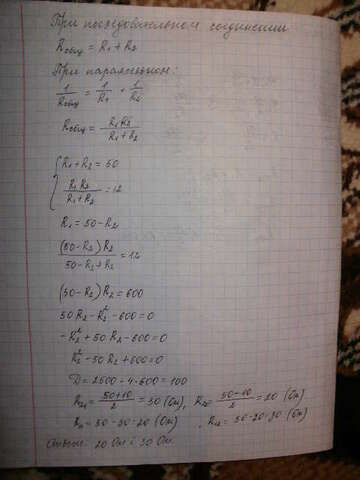 При последовательном соединении
Rобщ = R1 + R2
При параллельном:
1/Rобщ = 1/R1 + 1/R2
Rобщ = R1R2/(R1+R2)
{ R1 + R2 = 50
R1R2/(R1+R2) = 12
R1 = 50 - R2
(50-R2)R2/(50-R2+R2) = 12
(50-R2)R2 = 600
50R2 - R2² - 600 = 0
-R2² + 50R2 - 600 = 0
R2² - 50R2 + 600 = 0
D = 2500 - 4·600 = 100
R21 = (50+10)/2 = 30 (Ом), R22 = (50-10)/2 = 20 (Ом)
R11 = 50-30=20 (Ом), R12 = 50-20=30 (Ом)
Ответ: 20 Ом и 30 Ом.